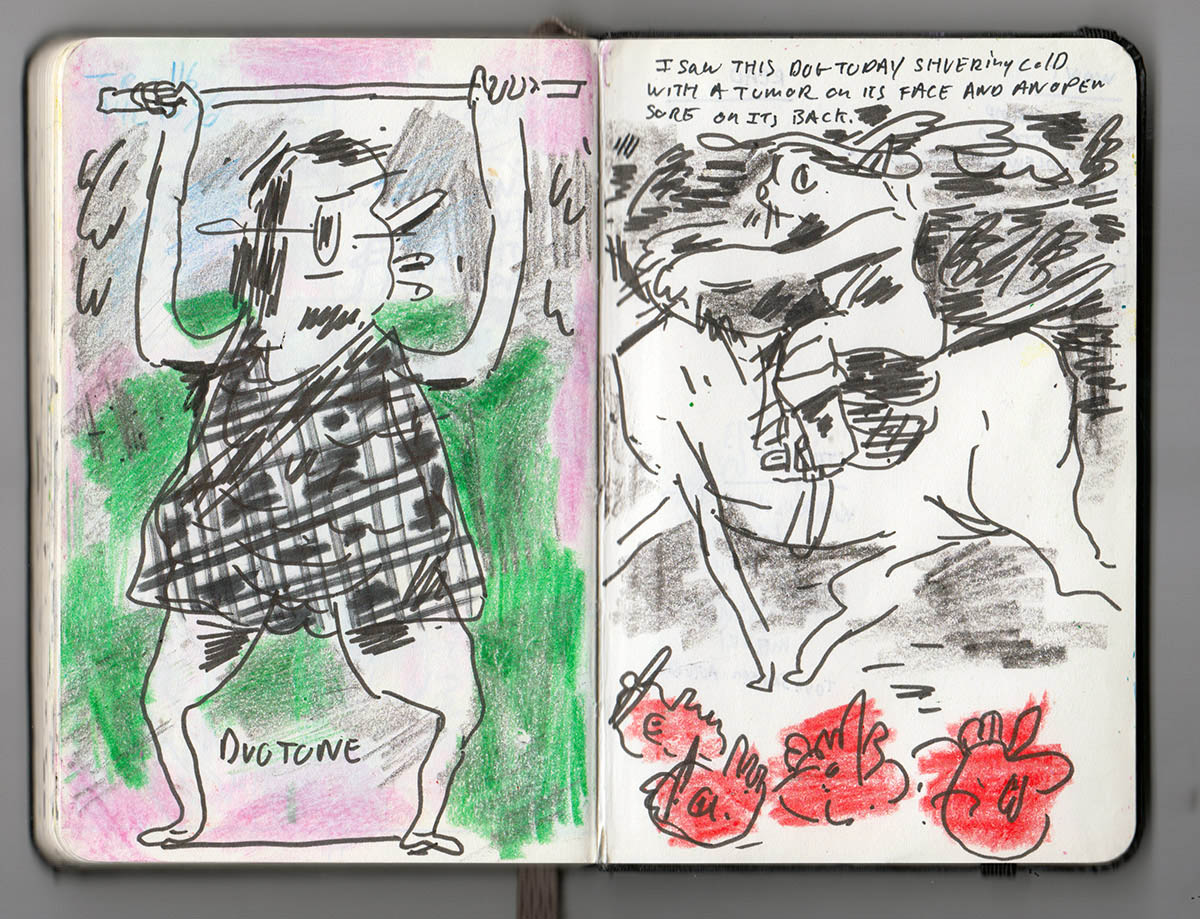 DUOTONE
I SAW THIS DOG TODAY SHVERING COLD
WITH A TUMOR ON ITS FACE AND AN OPEN
SORE ON ITS BACK.